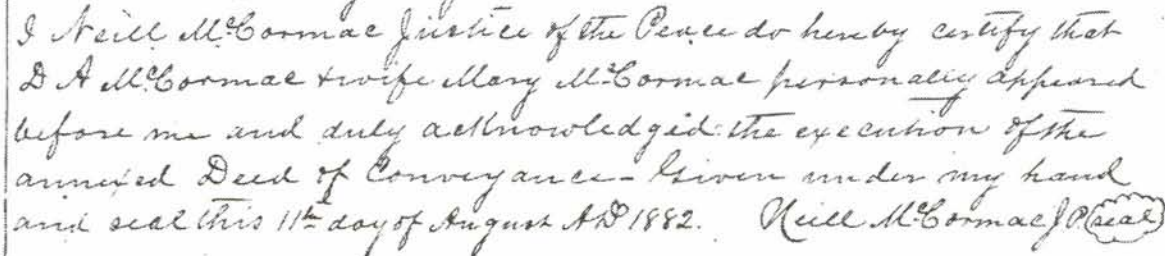 I Neill McCormac Justice of the Peace do hereby certify that
D A McCormac & wife Mary McCormac personally appeared
before me and duly acknowledged the execution of the
annexed Deed of Conveyance - Given under my hand
and seal this 11th day of August AD 1882. Neill McCormac J.P. (seal)